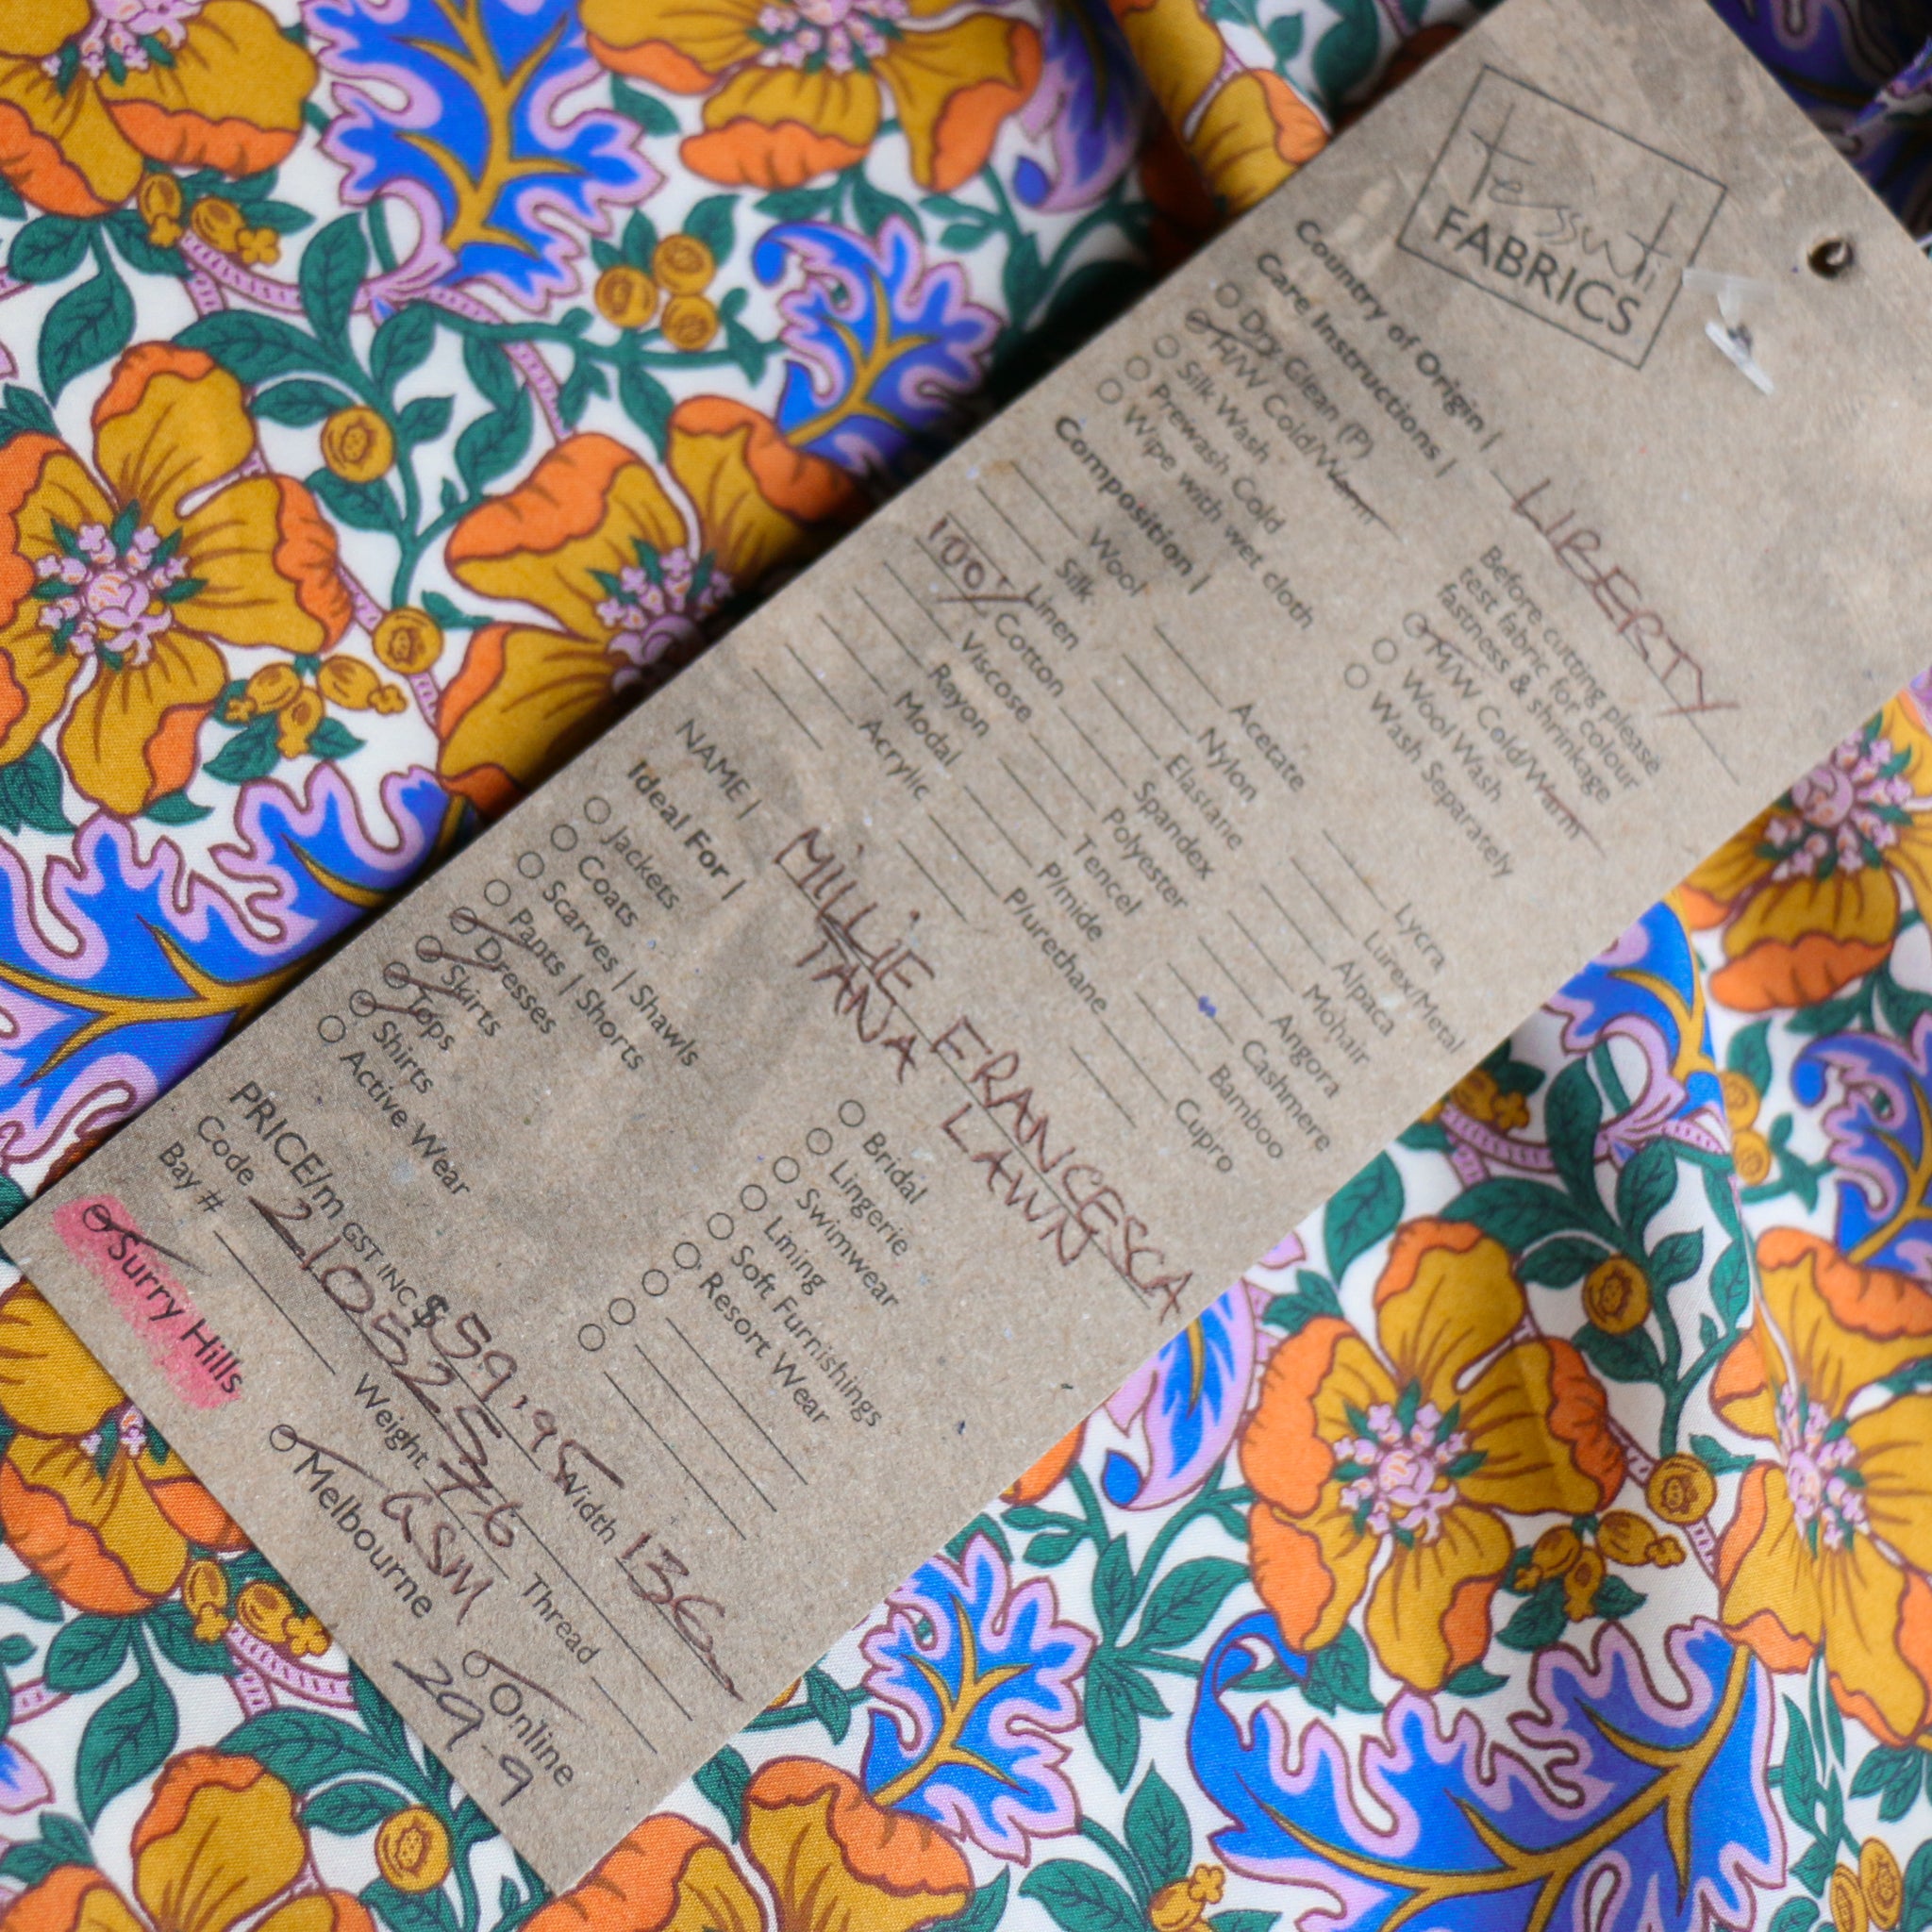 tessuti
FABRICS
Country of Origin | LIBERTY
Care Instructions |
Before cutting please
test fabric for colour
fastness & shrinkage
Dry Clean (P)
H/W Cold/Warm
Silk Wash
Prewash Cold
Wipe with wet cloth
M/W Cold/Warm
Wool Wash
Wash Separately
Composition |
Wool
Silk
Linen
100% Cotton
Viscose
Rayon
Modal
Acrylic
Acetate
Nylon
Elastane
Spandex
Polyester
Tencel
P/mide
P/urethane
Lycra
Lurex/Metal
Alpaca
Mohair
Angora
Cashmere
Bamboo
Cupro
NAME | MILLIE FRANCESCA
TANA LAWN
Ideal For |
Jackets
Coats
Scarves | Shawls
Pants | Shorts
Dresses
Skirts
Tops
Shirts
Active Wear
Bridal
Lingerie
Swimwear
Lining
Soft Furnishings
Resort Wear
PRICE/m GST INC $59.95 Width 136
Code 210525
Bay # Weight 76 Thread
GSM
Surry Hills Melbourne Online
29-9